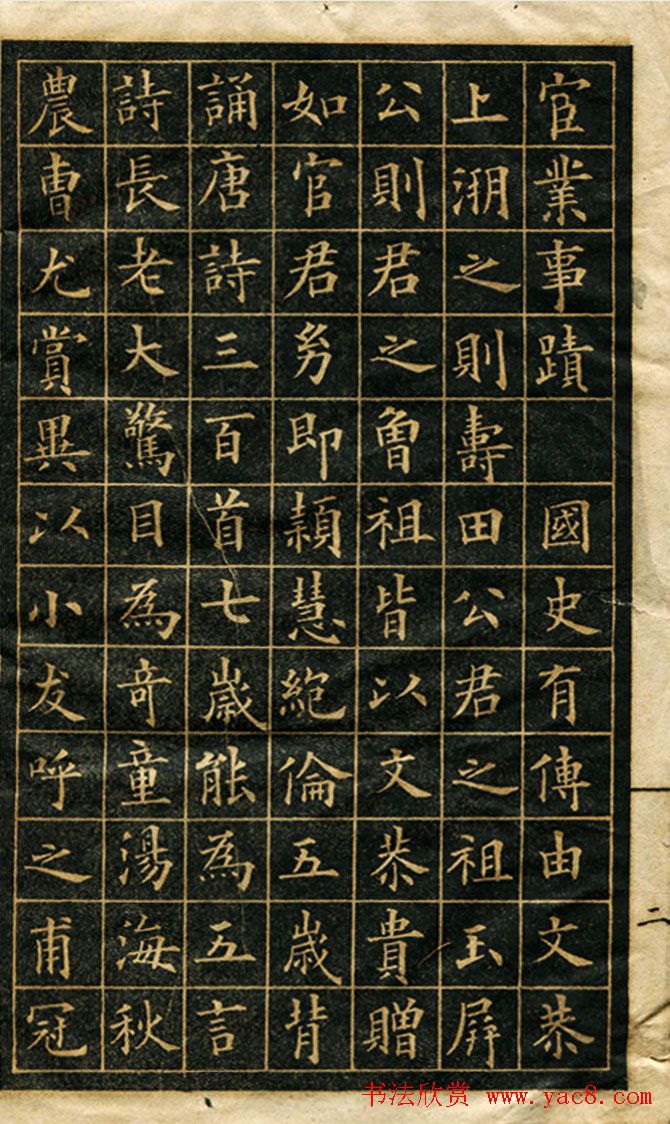 宦業事蹟　國史有傳由文恭
上溯之則壽田公君之祖玉屏
公則君之曾祖皆以文恭貴贈
如官君幼即穎慧絕倫五歲背
誦唐詩三百首七歲能為五言
詩長老大驚目為奇童湯海秋
農曹尤賞異以小友呼之甫冠
二
书法欣赏 www.yac8.com